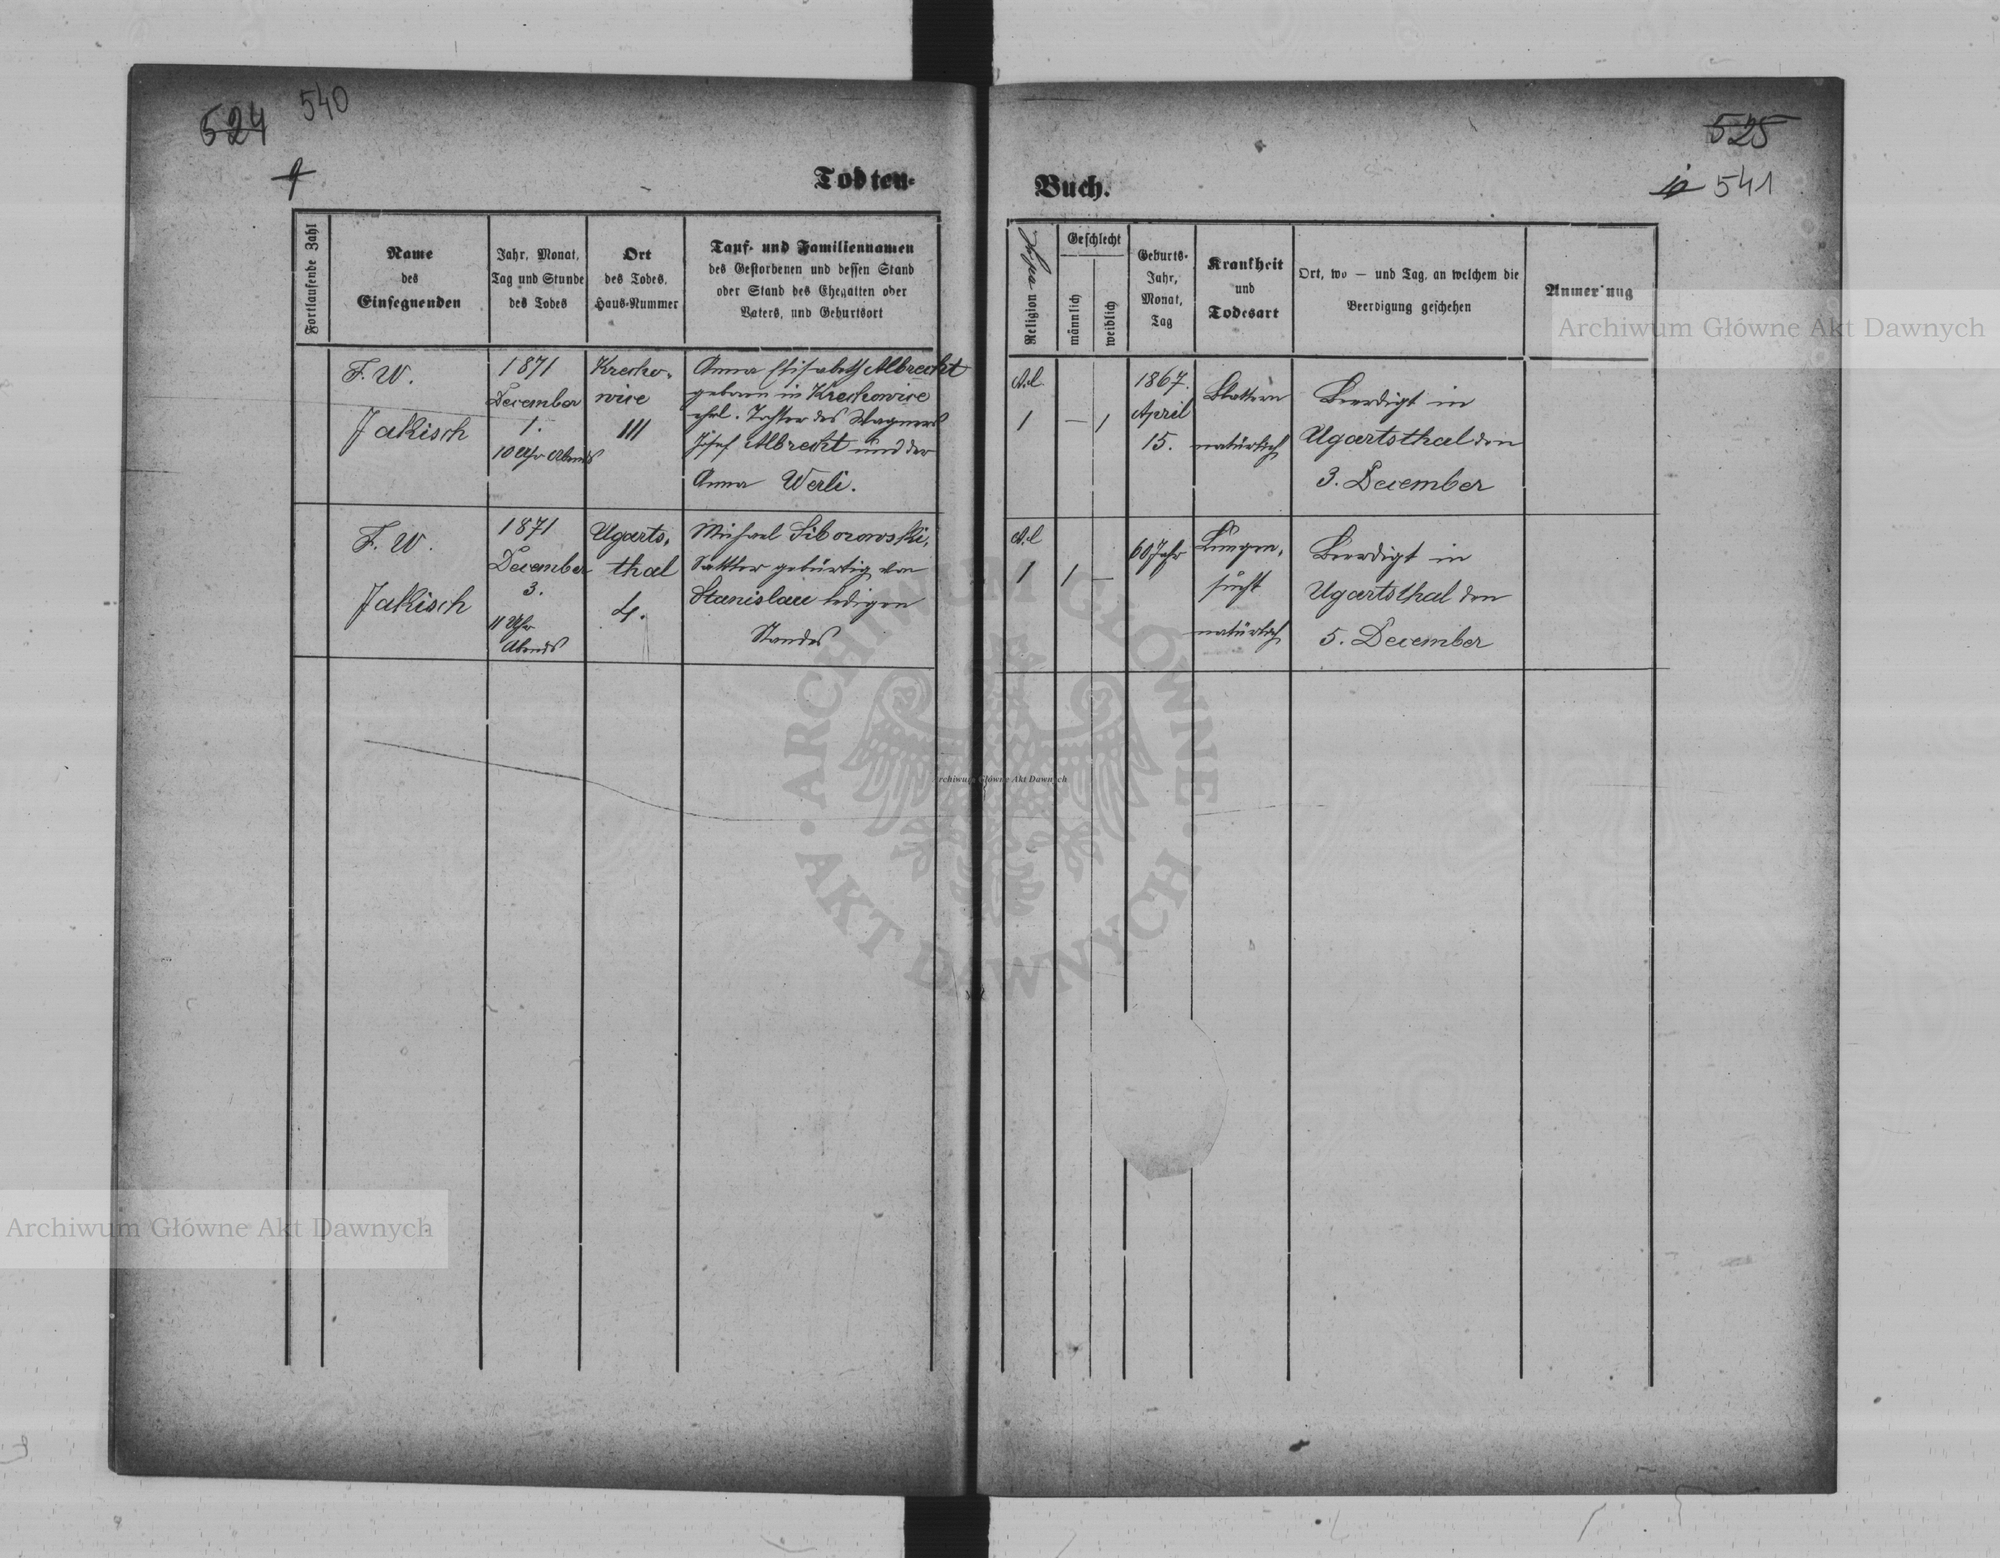 524 540
Todten-
Fortlaufende Zahl
Name
des
Einsegnenden
Jahr, Monat,
Tag und Stunde
des Todes
Ort
des Todes,
Haus-Nummer
Tauf- und Familiennamen
des Gestorbenen und dessen Stand
oder Stand des Ehegatten oder
Vaters, und Geburtsort
F. W.
Jakisch
1871
December
1.
10 Uhr Abends
Krecho-
wice
111
Anna Elisabeth Albrecht
geboren in Krechowice
ehel. Tochter des Wagners
Josef Albrecht und der
Anna Werle.
F. W.
Jakisch
1871
December
3.
11 Uhr
Abends
Ugarts-
thal
4.
Michael Siborowski,
Sattler gebürtig von
Stanislau ledigen
Standes
525
10 541
Buch.
Religion
Geschlecht
männlich
weiblich
Geburts-
Jahr,
Monat,
Tag
Krankheit
und
Todesart
Ort, wo — und Tag, an welchem die
Beerdigung geschehen
Anmerkung
A.C.
1 — 1
1867.
April
15.
Blattern
natürlich
Beerdigt in
Ugartsthal den
3. December
A.C.
1 1 —
60 Jahr
Lungen-
sucht
natürlich
Beerdigt in
Ugartsthal den
5. December
Archiwum Główne Akt Dawnych
ARCHIWUM GŁÓWNE
AKT DAWNYCH
Archiwum Główne Akt Dawnych
Archiwum Główne Akt Dawnych